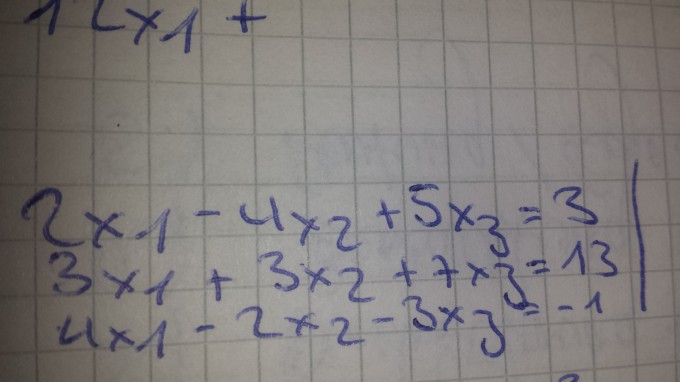 12x1 +
2x1 - 4x2 + 5x3 = 3
3x1 + 3x2 + 7x3 = 13
4x1 - 2x2 - 3x3 = -1